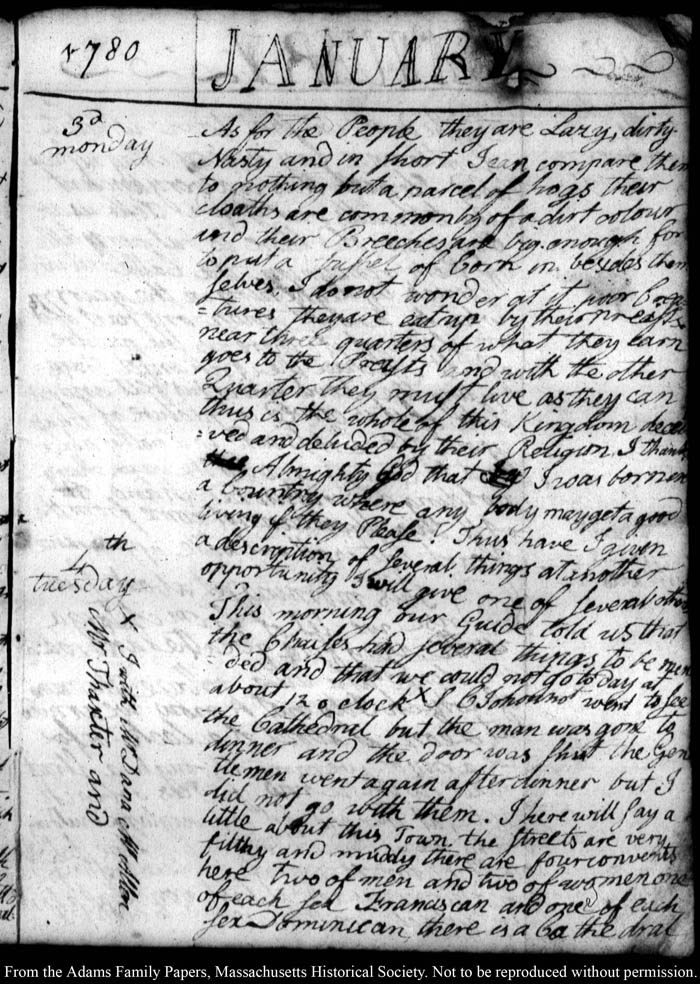 1780
JANUARY
3d
monday
As for the People they are Lazy, dirty
Nasty and in short I can compare them
to nothing but a parcel of hogs their
cloaths are commonly of a dirt colour
and their Breeches are big enough for
to put a bushel of Corn in besides them
selves I do not wonder at it poor Crea
=tures they are eat up by their preists
near three quarters of what they earn
goes to the Preists and with the other
Quarter they must live as they can
thus is the whole of this Kingdom decei
=ved and deluded by their Religion. I thank
Almighty God that I was born in
a Country where any body may get a good
living if they Please! Thus have I given
a description of several things at another
opportunity I will give one of several others
4th
tuesday
This morning our Guide told us that
the Chaises had several things to be men
ded and that we could not go to day at
about 12 o clock X S C Johonnot went to see
the Cathedral but the man was gone to
dinner and the door was shut the Gen
tlemen went again after dinner but I
did not go with them. I here will say a
little about this Town the streets are very
filthy and muddy there are four convents
here two of men and two of women one
of each sex Franciscan and one of each
sex Dominican there is a Ca the dral
X I with Mr Dana Mr Allen
Mr Thaxter and
From the Adams Family Papers, Massachusetts Historical Society. Not to be reproduced without permission.